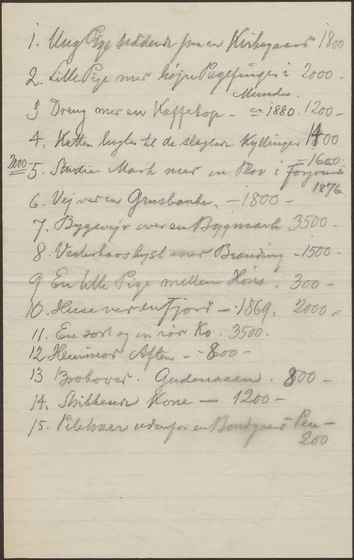 1. Ung Pige siddende paa en Kirkegaard 1800
2. Lille Pige med højre Pegefinger i 2000 -
Munden
3 Dreng med en Kaffekop - 1880. 1200 -
4. Katten til de Kyllinger 1400
1600-
2000 5. Mark med en Plov i Forgrund
1876
6. Vej ved en Grusbanke. - 1800 -
7. Bygevejr over en Bygmark 3500 -
8 Vesterhavskyst med Brænding - 1500 -
9 En lille Pige mellem Høns. 300 -
10. Huse ved en Fjord - 1869. 2000 -
11. En sort og en rød Ko. 3500.
12 Hjemmad Aften - 800 -
13 Brobover. Gudenaaen. 800 -
14. Strikkende Kone - 1200 -
15. Piletræer udenfor en Bondgaard Pen -
200